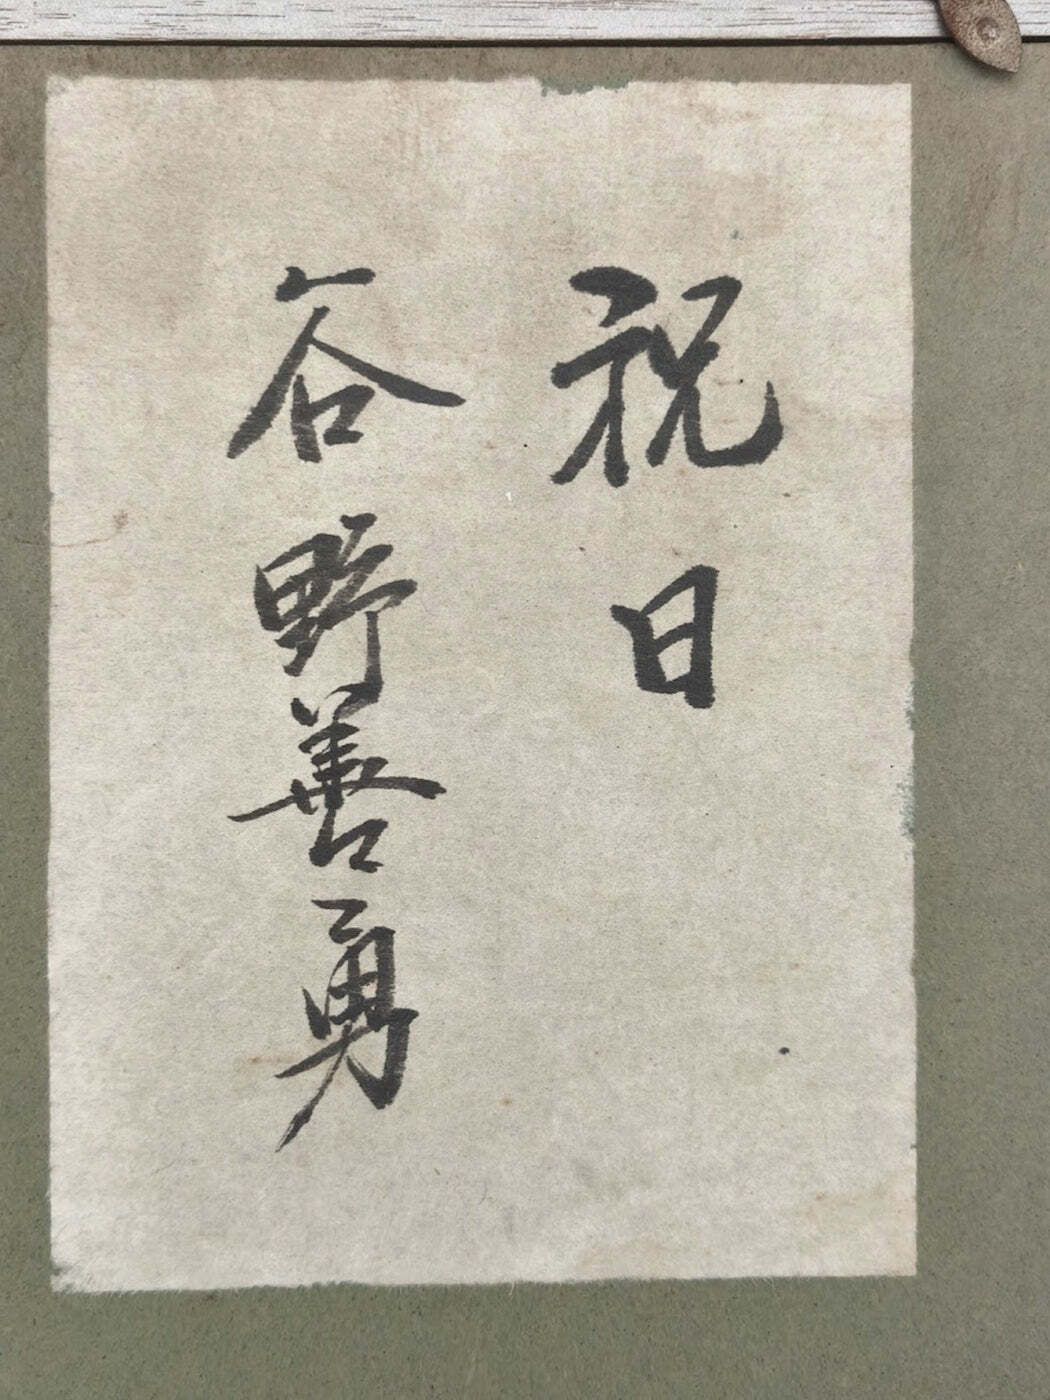 祝日
谷野善勇